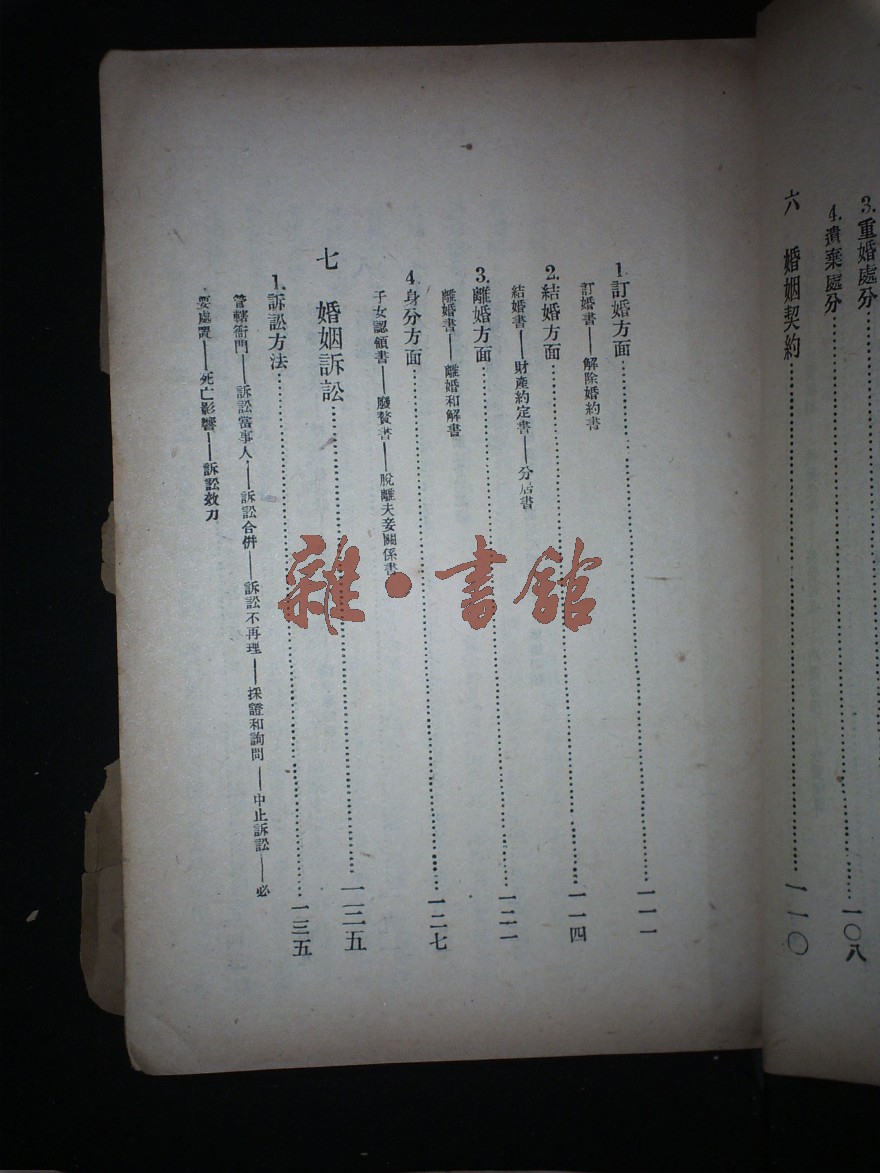 3.重婚處分……一〇八
4.遺棄處分
六 婚姻契約……一一〇
1.訂婚方面……一一一
訂婚書——解除婚約書
2.結婚方面……一一四
結婚書——財產約定書——分居書
3.離婚方面……一二一
離婚書——離婚和解書
4.身分方面……一二七
子女認領書——廢贅書——脫離夫妾關係書
七 婚姻訴訟……一三五
1.訴訟方法……一三五
管轄衙門——訴訟當事人——訴訟合併——訴訟不再理——採證和詢問——中止訴訟——必
要處置——死亡影響——訴訟效力
雜·書館